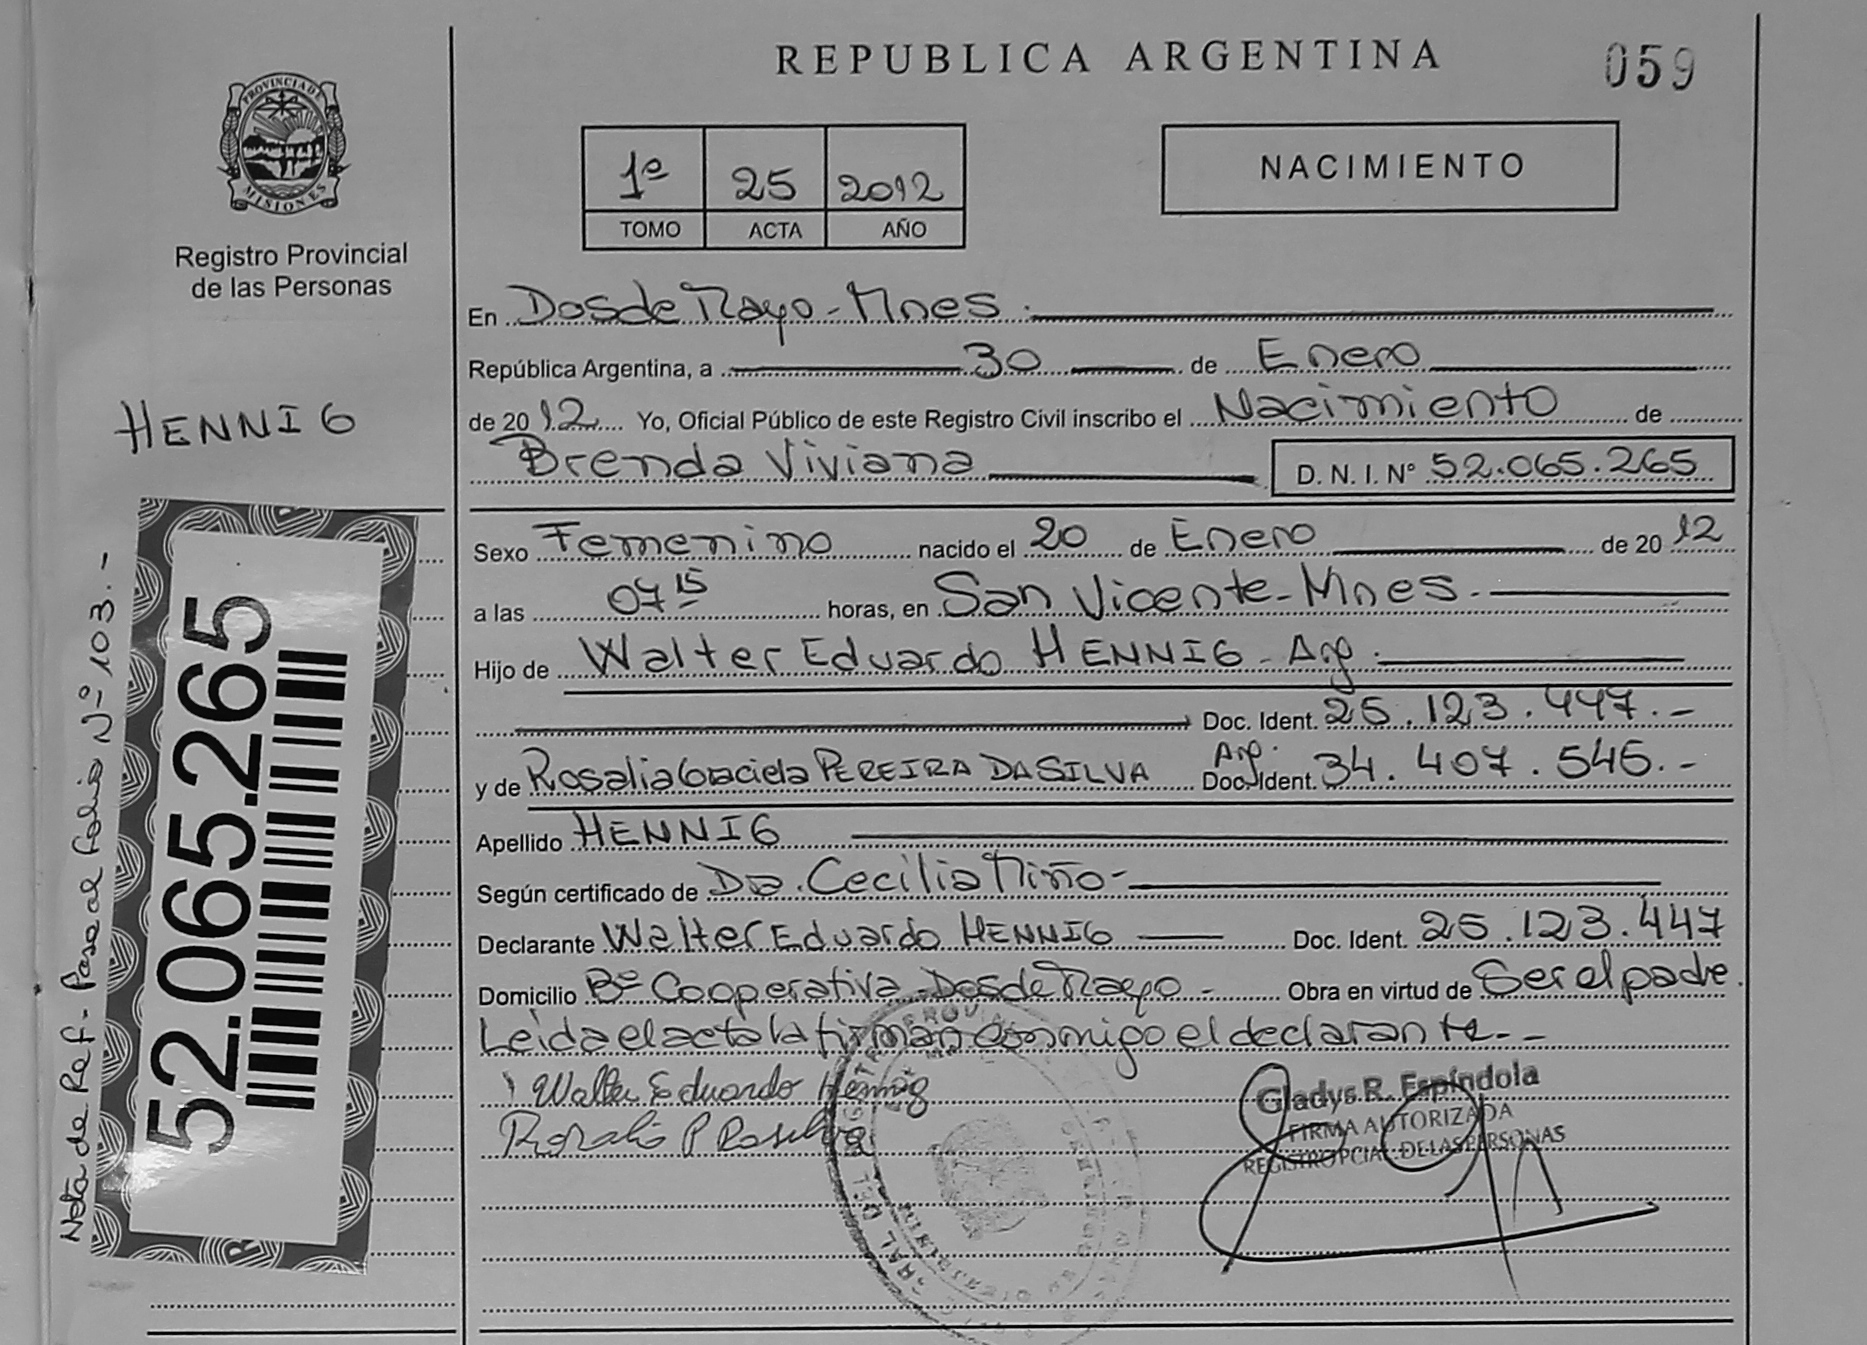 REPUBLICA ARGENTINA
059
PROVINCIA DE
MISIONES
Registro Provincial
de las Personas
1º 25 2012
TOMO ACTA AÑO
NACIMIENTO
En Dos de Mayo - Mnes.
República Argentina, a 30 de Enero
de 2012 Yo, Oficial Público de este Registro Civil inscribo el Nacimiento de
HENNIG
Brenda Viviana D. N. I. Nº 52.065.265
Sexo Femenino nacido el 20 de Enero de 2012
a las 07 15 horas, en San Vicente - Mnes.
Hijo de Walter Eduardo HENNIG - Arg.
Doc. Ident. 25.123.447.-
y de Rosalia Graciela PEREIRA DA SILVA Arg. Doc. Ident. 34.407.545.-
Apellido HENNIG
Según certificado de Dra. Cecilia Miño -
Declarante Walter Eduardo HENNIG Doc. Ident. 25.123.447
Domicilio Bº Cooperativa - Dos de Mayo - Obra en virtud de Ser el padre.
Leida el acta la firman conmigo el declarante. - -
Walter Eduardo Hennig
Gladys R. Espíndola
FIRMA AUTORIZADA
REGISTRO PCIAL. DE LAS PERSONAS
Nota de Ref. - Pasa al folio Nº 103. -
52.065.265